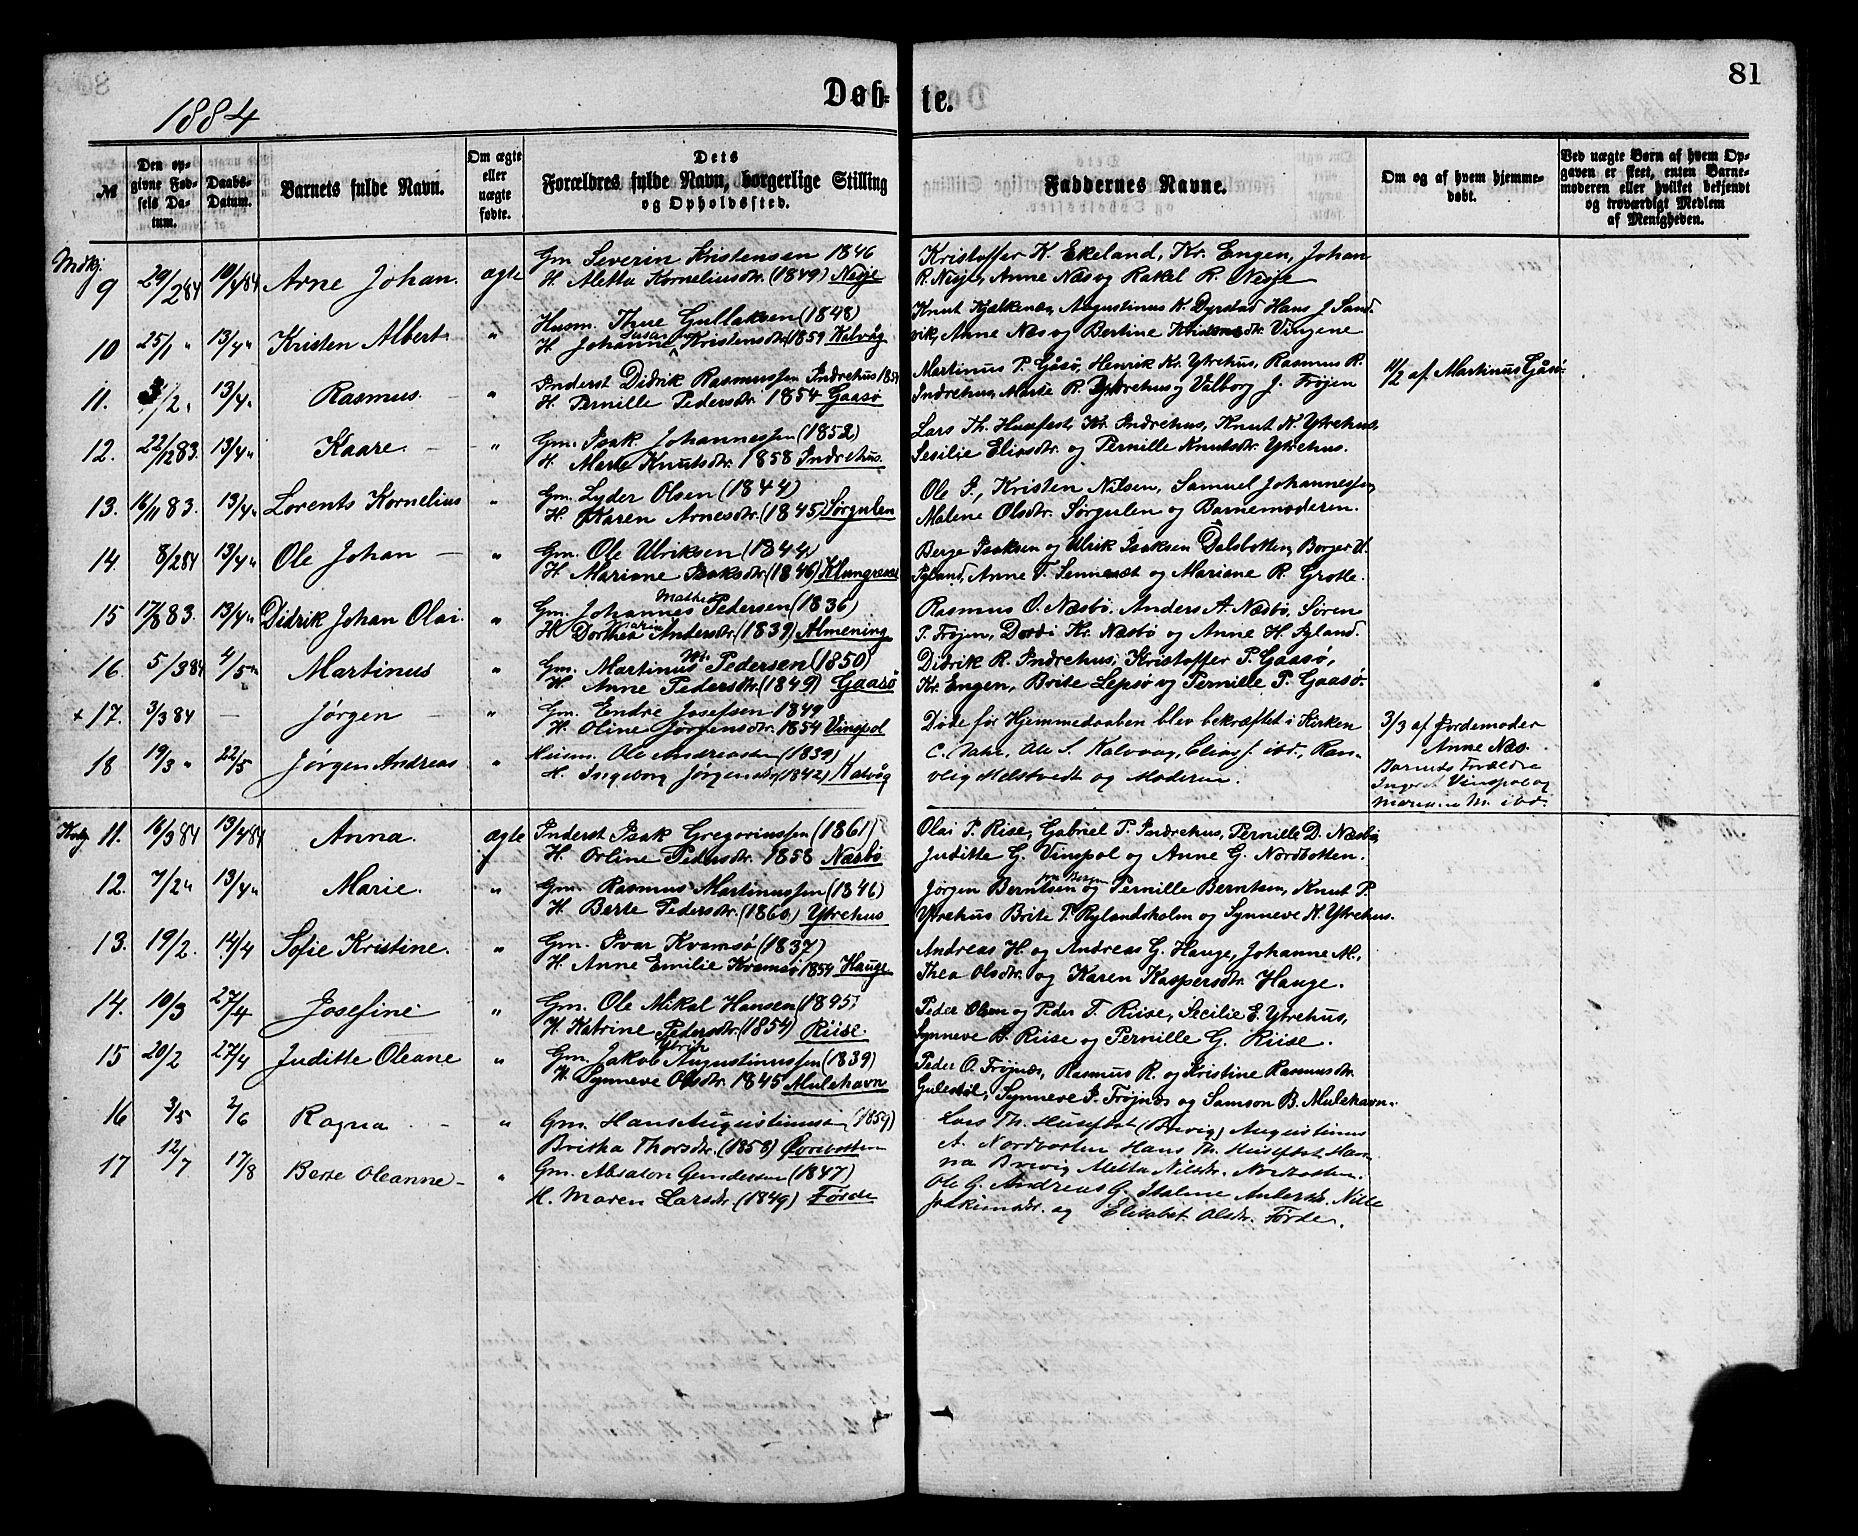 81
1884
Døb-te.
№
Den opgivne Fødsels Datum.
Daabs-Datum.
Barnets fulde Navn.
Om ægte eller uægte født.
Dets Forældres fulde Navn, borgerlige Stilling og Opholdssted.
Faddernes Navne.
Om og af hvem hjemmedøbt.
Ved uægte Børn af hvem Opgaven er skeet, enten Barnemoderen eller hvilket bekjendt og troværdigt Medlem af Menigheden.
9 29/2 84 10/4 84 Arne Johan. ægte
Gm. Severin Kristensen 1846
H. Aletta Korneliusdtr. (1849) Nesje
Kristoffer K. Ekeland, Kr. Engen, Johan
R. Nesje, Anne Næs og Rakel R. Nesje
10 25/1 " 13/4 " Kristen Albert "
Husm. Thue Gullaksen (1848)
H. Johanne Kristensdtr. 1859 Kalvåg
Knut Kjelkenes, Augustinus K. Dyrstad Hans J. Sand
vik, Anne Næs og Bertine Vingene
11. 3/2 " 13/4 " Rasmus "
Inderst Didrik Rasmussen Indrehus 1854
H. Pernille Pedersdtr. 1854 Gaasø
Martinus P. Gåsø, Henrik Kr. Ytrehus, Rasmus R.
Indrehus, Marte R. Ytrehus og Valborg J. Frøjen
11/2 af Martinus Gåsø
12. 22/12 83. 13/4 " Kaare "
Gm. Isak Johannessen (1852)
H. Marte Knutsdtr. 1858 Indrehus.
Lars Th. Husefest, Kr. Indrehus, Knut N. Ytrehus,
Sesilie Eliasdtr. og Pernille Knutsdtr. Ytrehus.
13. 16/11 83. 13/4 " Lorents Kornelius "
Gm. Lyder Olsen (1844)
H. Karen Arnesdtr. (1845) Sørgulen
Ole I., Kristen Nilsen, Samuel Johannessen,
Malene Olsdtr. Sørgulen og Barnemoderen.
14. 8/2 84 13/4 " Ole Johan "
Gm. Ole Ulriksen (1844)
H. Mariane Isaksdtr. (1846)
Berge Isaksen og Ulrik Isaksen Dalsbotten, Borger U.
Ryland, Anne T. og Mariane R. Grotle.
15 17/8 83. 13/4 " Didrik Johan Olai. "
Gm. Johannes Mathe Pedersen (1836)
H. Dorthea Maria Andersdtr. (1839) Almening
Rasmus O. Næsbø, Anders A. Næsbø, Søren
P. Frøjen, Dordi Kr. Næsbø og Anne H. Ryland.
16. 5/3 84 4/5 " Martinus "
Gm. Martinus M. Pedersen (1850)
H. Anne Pedersdtr. (1849) Gaasø
Didrik R. Indrehus, Kristoffer P. Gaasø,
Kr. Engen, Brite Lepsø og Pernille P. Gaasø.
+ 17. 3/3 84 — Jørgen "
Gm. Endre Josefsen 1849
H. Oline Jørgensdtr. 1854 Vinspol
Døde før Hjemmedaaben blev bekræftet i Kirken
3/3 af Jordemoder
Anne Næs.
18 19/3 " 22/5 Jørgen Andreas "
Husm. Ole Andreassen (1839)
H. Ingeborg Jørgensdtr. (1842) Kalvåg
Ole S. Kalvaag, Elias J. ibd., Ran-
veig Melstvedt og Moderen.
Barnets Forældre
Vinspol og
M. ibd.
11. 16/3 84 13/4 84 Anna. ægte
Inderst Isak Gregoriussen (1861)
H. Orline Pedersdtr. 1858 Næsbø
Olai P. Rise, Gabriel P. Indrehus, Pernille D. Næsbø,
Juditte G. Vinspol og Anne G. Nordbotten.
12. 7/2 " 13/4 " Marie. "
Gm. Rasmus Martinussen (1846)
H. Berte Pedersdtr. (1860) Ytrehus
Jørgen Berntsen fra Bergen og Pernille Berntsen, Knut P.
Ytrehus Brite P. Rylandsholm og Synneve K. Ytrehus.
13. 19/2. 14/4 Sofie Kristine. "
Gm. Ivar Kvamsø (1837)
H. Anne Emilie Kvamsø 1854 Hauge
Andreas H. og Andreas G. Hauge, Johanne M.,
Thea Olsdtr. og Karen Kaspersdtr. Hauge.
14. 10/3 27/4 Josefine "
Gm. Ole Mikal Hansen
H. Katrine Pedersdtr. (1854) Riise.
Peder Olsen og Peder T. Riise, Secilie E. Ytrehus,
Synneve B. Riise og Pernille G. Riise.
15 20/2 27/4 Juditte Oleane "
Gm. Jakob Ulrik Augustinussen (1839)
H. Synneve Olsdtr. 1845 Mulehavn
Peder O. Frøjnæs, Rasmus R. og Kristine Rasmusdtr.
Gulestøl, Synneve P. Frøjnæs og Samson B. Mulehavn.
16 3/5 2/6 Ragna "
Gm. Hans Augustinussen (1859)
Britha Thorsdtr. (1858)
Lars Th. Husefest (Brevig) Augustinus
A. Nordbotten Hans Th. Husefest Han-
na Brevig Aletta Nilsdtr. Norbotten.
17 12/7 17/8 Berte Oleanne "
Gm. Absalon Gundersen (1847)
H. Maren Larsdtr. (1849) Førde
Ole G. Andreas G. Malene Andersdtr. Nille
Joakimsdtr. og Elisabet Olsdtr. Førde.